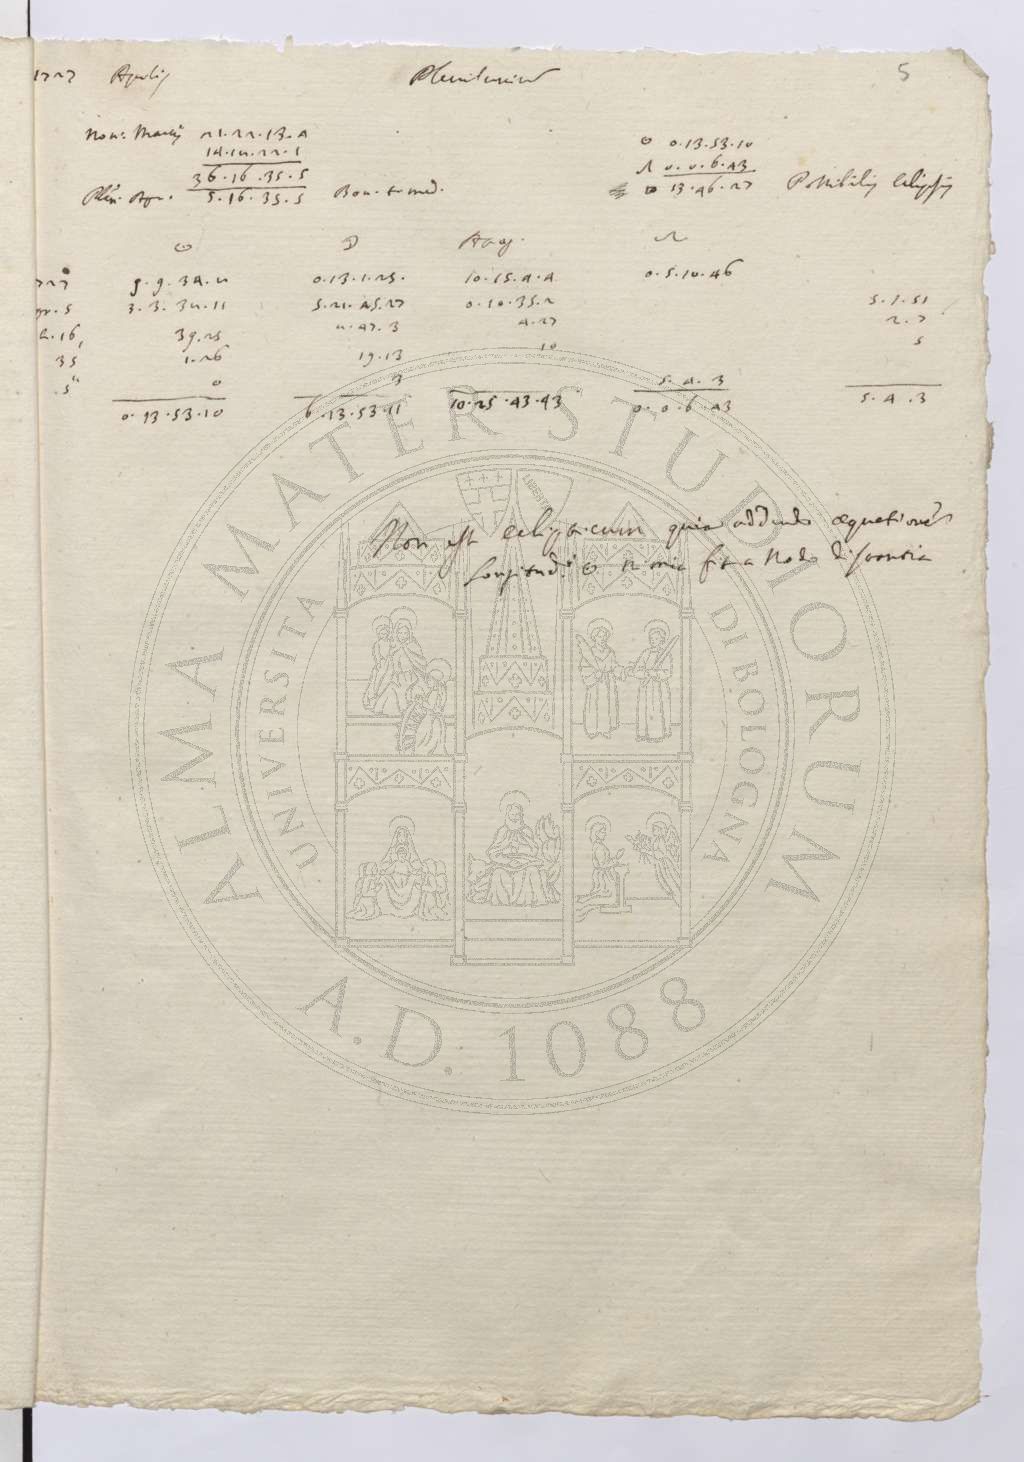 1727 Aprilis Plenilunium 5
Nov: Martij 21.22.13.4
14.18.22.1
36.16.35.5
Plen. Apr. 5.16.35.5 Bon. t. med.
☉ 0.13.53.10
☊ 0.0.6.43
0 13.46.27 Possibilis Eclipsis
☉ ☽ Apog. ☊
727 9.9.34.8 0.13.1.25. 10.15.4.4 0.5.10.46
pr. 5 3.3.38.11 5.21.45.27 0.10.35.2 5.1.51
h. 16, 39.25 8.47.3 4.27 2.7
35 1.26 19.13 10 5
5" 0 3 5.4.3
0.13.53.10 6.13.53.11 10.25.43.43 0.0.6.43 5.4.3
Non est eclipticum quia addendo æquationes
Longitud. ☉ nimia fit a Nodo distantia
ALMA MATER STUDIORUM
UNIVERSITA DI BOLOGNA
LIBERTAS
A.D. 1088